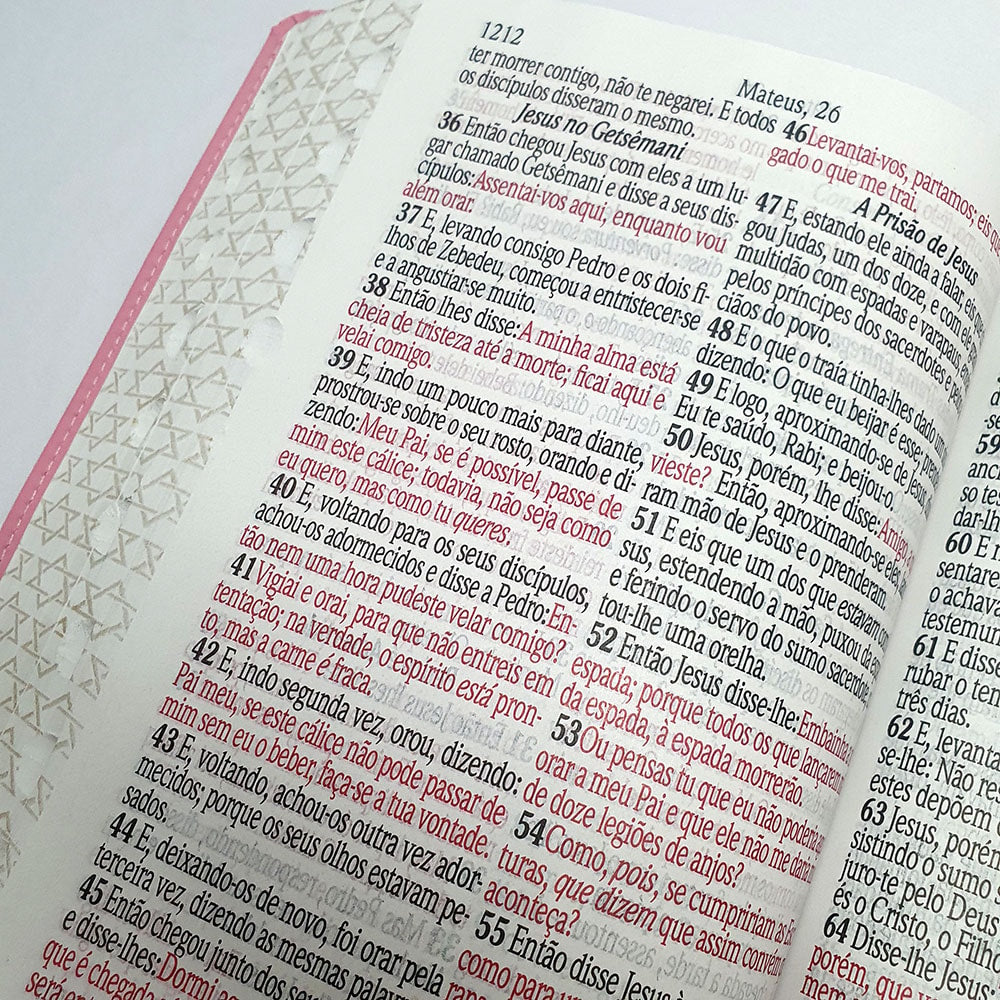 1212
Mateus, 26
ter morrer contigo, não te negarei. E todos
os discípulos disseram o mesmo.
Jesus no Getsêmani
36 Então chegou Jesus com eles a um lu-
gar chamado Getsêmani e disse a seus dis-
cípulos: Assentai-vos aqui, enquanto vou
além orar.
37 E, levando consigo Pedro e os dois fi-
lhos de Zebedeu, começou a entristecer-se
e a angustiar-se muito.
38 Então lhes disse: A minha alma está
cheia de tristeza até a morte; ficai aqui e
velai comigo.
39 E, indo um pouco mais para diante,
prostrou-se sobre o seu rosto, orando e di-
zendo: Meu Pai, se é possível, passe de
mim este cálice; todavia, não seja como
eu quero, mas como tu queres.
40 E, voltando para os seus discípulos,
achou-os adormecidos e disse a Pedro: En-
tão nem uma hora pudeste velar comigo?
41 Vigiai e orai, para que não entreis em
tentação; na verdade, o espírito está pron-
to, mas a carne é fraca.
42 E, indo segunda vez, orou, dizendo:
Pai meu, se este cálice não pode passar de
mim sem eu o beber, faça-se a tua vontade.
43 E, voltando, achou-os outra vez ador-
mecidos; porque os seus olhos estavam pe-
sados.
44 E, deixando-os de novo, foi orar pela
terceira vez, dizendo as mesmas palavras.
45 Então chegou junto dos seus
e disse-lhes: Dormi
que é chegada
será
46 Levantai-vos, partamos; eis
gado o que me trai.
A Prisão de Jesus
47 E, estando ele ainda a falar, eis
gou Judas, um dos doze, e com ele
multidão com espadas e varapaus,
pelos príncipes dos sacerdotes e pelos
ciãos do povo.
48 E o que o traía tinha-lhes dado um
dizendo: O que eu beijar é esse;
49 E logo, aproximando-se de Jesus,
Eu te saúdo, Rabi; e beijou-o.
50 Jesus, porém, lhe disse: Amigo,
vieste? Então, aproximando-se eles,
ram mão de Jesus e o prenderam.
51 E eis que um dos que estavam
sus, estendendo a mão, puxou da
e ferindo o servo do sumo sacerdote,
tou-lhe uma orelha.
52 Então Jesus disse-lhe: Embainha
espada; porque todos os que lançarem
da espada, à espada morrerão.
53 Ou pensas tu que eu não poderia
orar a meu Pai e que ele não me daria
de doze legiões de anjos?
54 Como, pois, se cumpririam as
turas, que dizem que assim convém
aconteça?
55 Então disse Jesus
como para um
59
anc
so
dar-lh
60 E
sentare
o achava
testemun
61 E disse
rubar o tem
três dias.
62 E, levanta
se-lhe: Não re
estes depõem
63 Jesus, porém
sistindo o sumo
juro-te pelo Deus
és o Cristo, o Filh
64 Disse-lhe Jesus
porém, que
mem